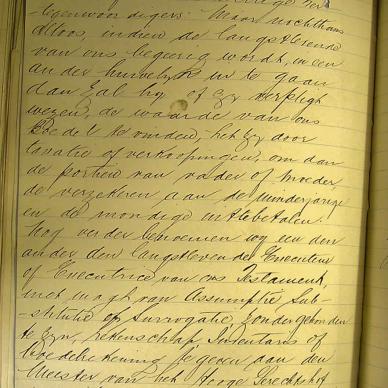 tegenwoordigers. Maar nochthans
altoos, indien de langstlevende
van ons begeerig wordt, in een
ander huwelijk in te gaan
dan zal hy of zy verpligt
wezen, de waarde van ons
Boedel te vinden, het zy door
taxatie of verkoopingen, om dan
de portien van vader of moeder,
te verzekeren aan de minderjarige
en de mondige uit te betalen.
Nog verder benoemen wy een den
ander den langstlevende Executeur
of Executrice van ons Testament,
met magt van Assumptie, Sub-
-stitutie of Surrogatie, zonder gehouden
te zyn, rekenschap, Inventaris of
Boedelrekening te geven aan den
Meester van het Hooge Gerechtshof